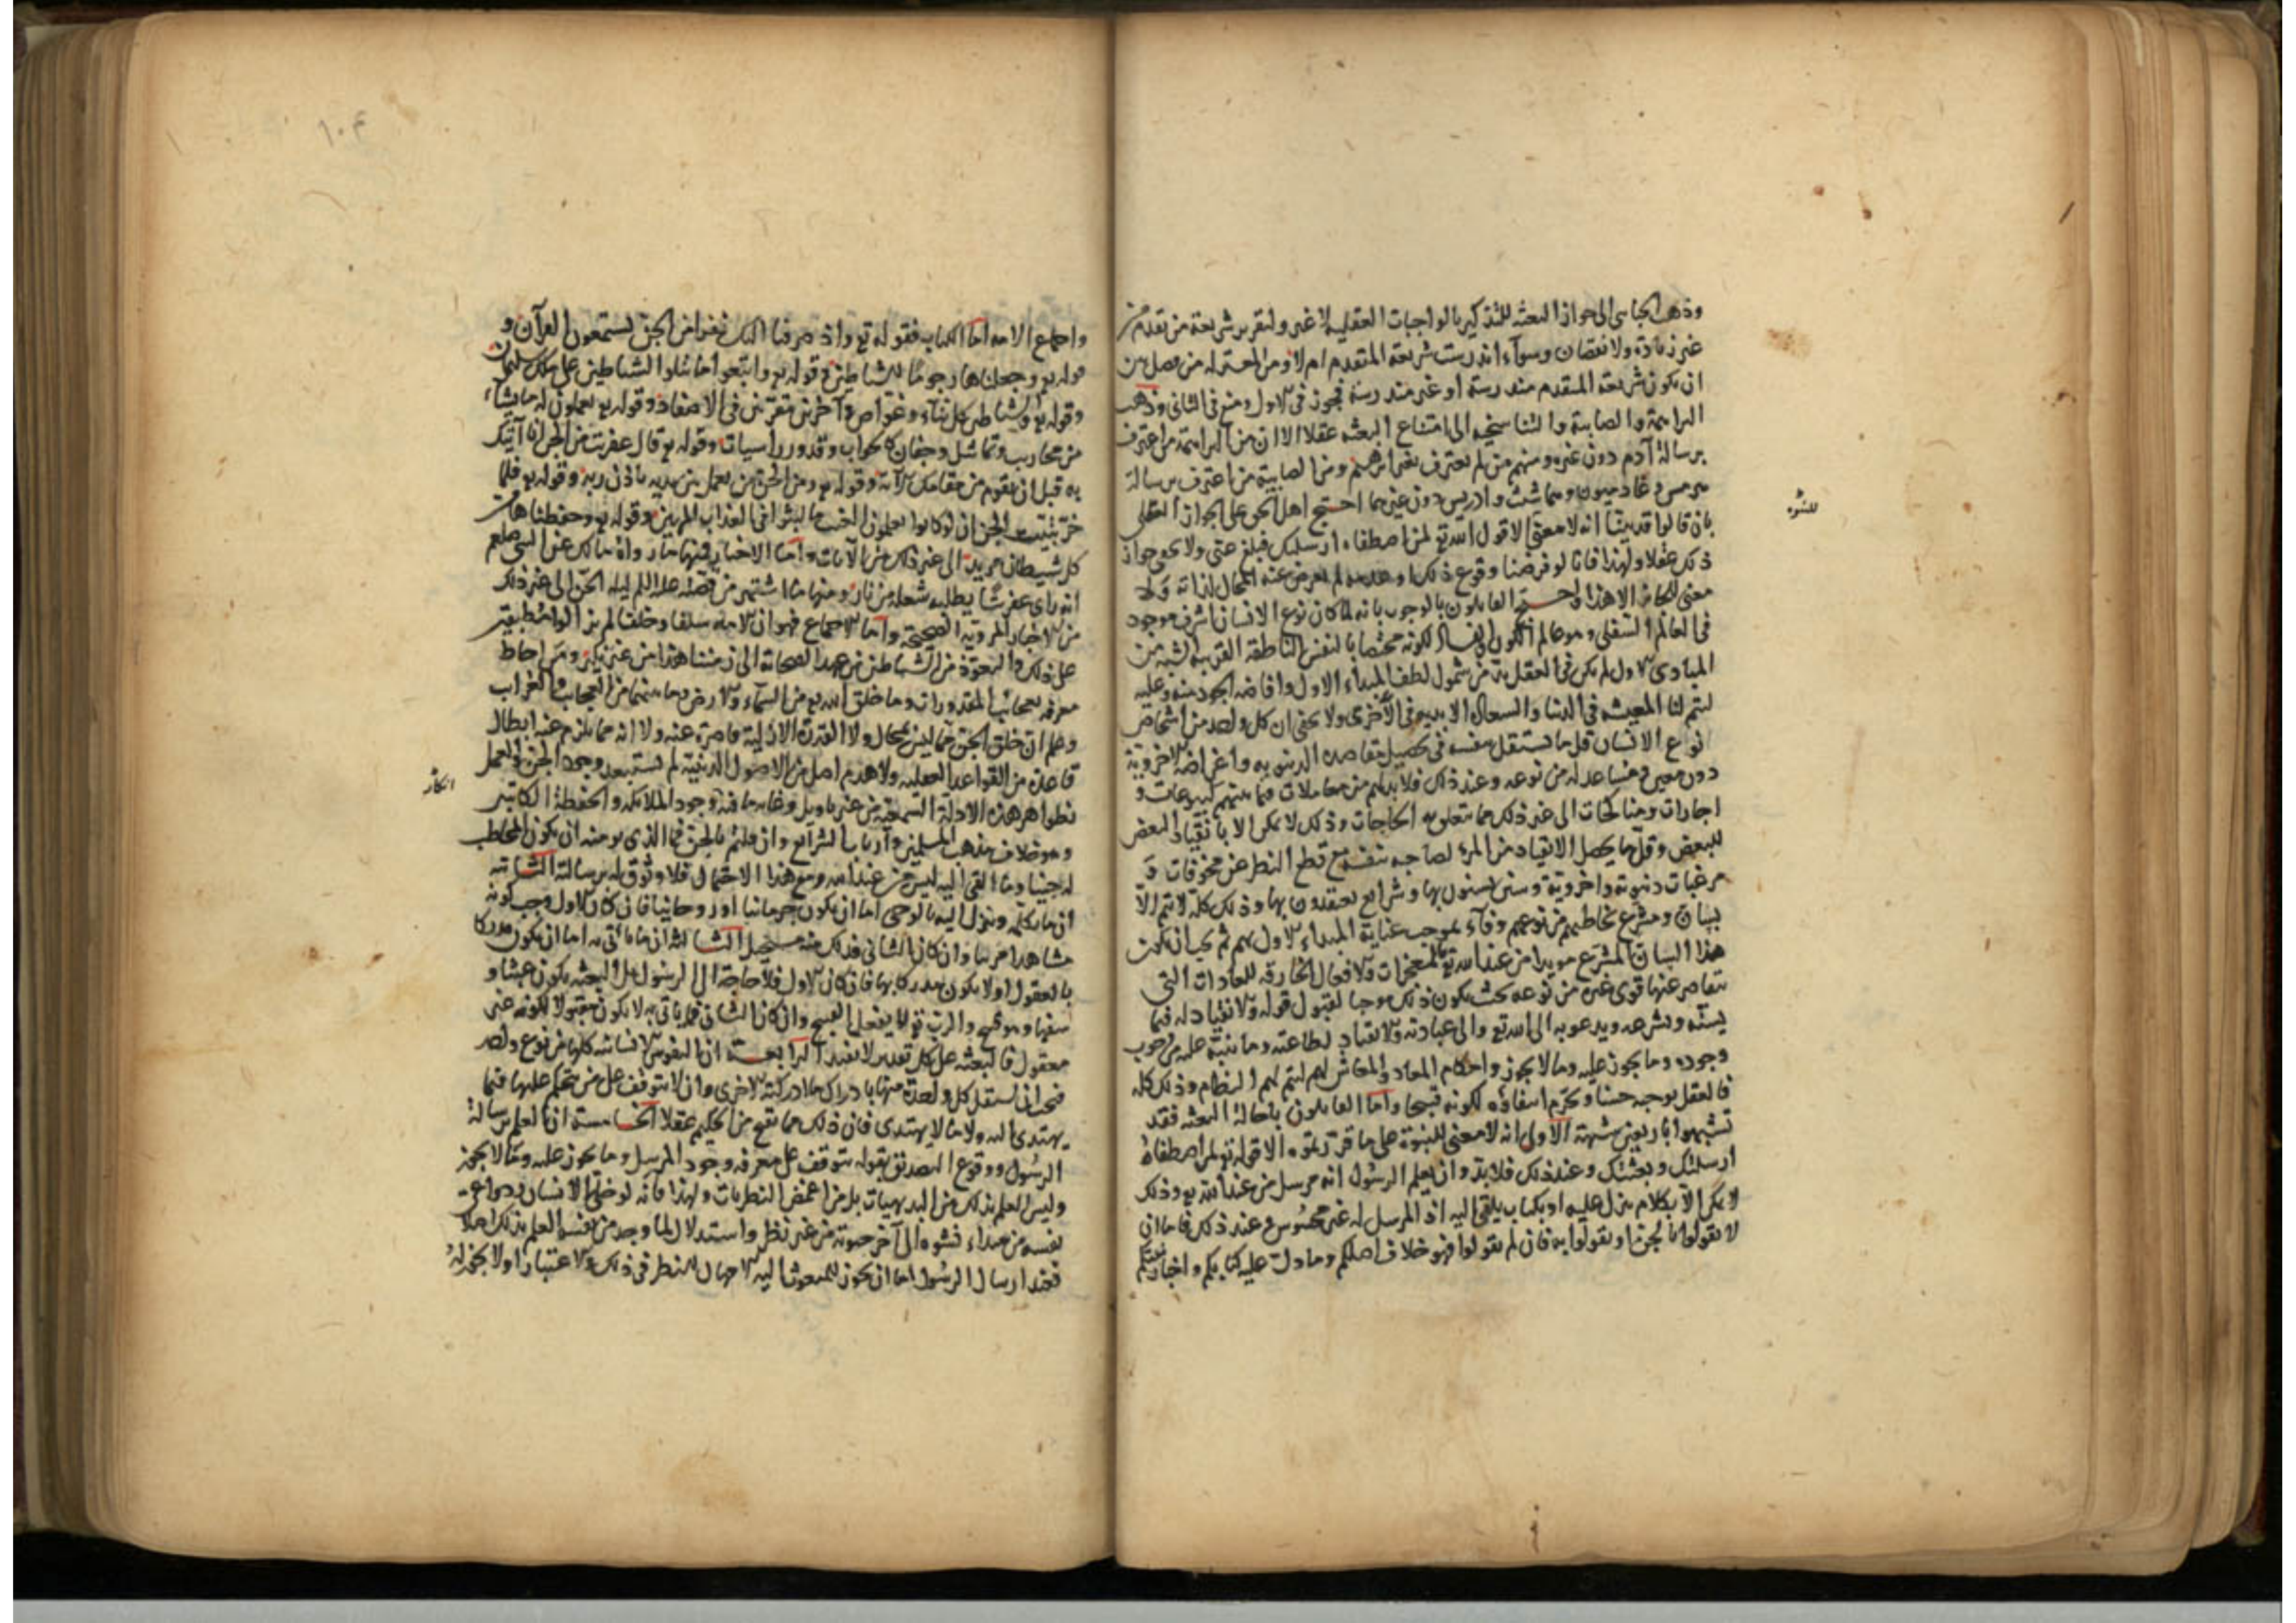 وذهب الجبائى الى جواز البعثه للتذكير بالواجبات العقليه لا غير ولتقرير شريعة من تقدم من
غير زيادة ولا نقصان وسوآء اندرست شريعة المتقدم ام لا ومن المعتزله من فصل بين
ان يكون شريعة المتقدم مندرسة او غير مندرسة فجوز فى الاول ومنع فى الثانى وذهب
البراهمة والصابية والتناسخيه الى امتناع البعثه عقلا الا ان من البراهمة من اعترف
برسالة آدم دون غيره ومنهم من لم يعترف بغير ابرهيم ومن الصابية من اعترف برسالة
هرمس وغاديميون وهما شيث وادريس دون غيرهما احتج اهل الحق على الجواز العقلى
بان قالوا قد بينا انه لا معنى الا قول الله تع لمن اصطفاه ارسلتك فبلغ عنى ولا يخفى جواز
للنبوه
ذلك عقلا ولهذا فانا لو فرضنا وقوع ذلك او عدمه لم يعرض عنه المحال لذاته ولا
معنى للجائز الا هذا واحتج القايلون بالوجوب بانه لما كان نوع الانسان اشرف موجود
فى العالم السفلى وهو عالم الكون والفساد لكونه مختصا بالنفس الناطقة القريبه الشبه من
المبادى الاول لم يكن فى العقل بد من شمول لطف المبداء الاول وافاضه الجود منه وعليه
لتتم لنا المعيشه فى الدنيا والسعاده الابديه فى الاخرى ولا يخفى ان كل واحد من اشخاص
نوع الانسان قل ما يستقل بنفسه فى تحصيل مقاصده الدنيويه واغراضه الاخروية
دون معين ومساعد له من نوعه وعند ذلك فلا بد لهم من معاملات فيما بينهم كبيوعات و
اجارات ومناكحات الى غير ذلك مما يتعلق به الحاجات وذلك لا يمكن الا بانقياد البعض
للبعض وقل ما يحصل الانقياد من المرء لصاحبه بنفسه مع قطع النظر عن مخوفات و
مرغبات دنيوية واخروية وسنن يستنون بها وشرائع يعتقدون بها وذلك كله لا يتم الا
ببيان ومشرع يخاطبهم من نوعهم وفآء بموجب عناية المبداء الاول بهم ثم يجب ان يكون
هذا البيان المشرع مويدا من عند الله تع بالمعجزات والافعال الخارقه للعادات التى
تتقاصر عنها قوى غيره من نوعه بحيث يكون ذلك موجبا لقبول قوله والانقياد له فيما
يسنّه ويشرعه ويدعو به الى الله تع والى عبادته والانقياد لطاعته وما ينبّه عليه من وجوب
وجوده وما يجوز عليه وما لا يجوز واحكام المعاد والمعاش لهم ليتم لهم النظام وذلك كله
فالعقل يوجبه حسنا ويحرّم انتفاؤه لكونه قبيحا واما القايلون باحالة البعثه فقد
تشبهوا باربعين شبهة الاولى انه لا معنى للنبوة على ما قررتموه الا قوله تع لمن اصطفاه
ارسلتك وبعثتك وعند ذلك فلا بد وان يعلم الرسول انه مرسل من عند الله تع وذلك
لا يمكن الا بكلام ينزل عليه او بكتاب يلقى اليه اذ المرسل له غير محسوس وعند ذلك فاما ان
لا تقولوا بالجن او تقولوا به فان لم تقولوا فهو خلاف اصلكم وما دلت عليه كتابكم واخبار نبيكم
١٠٤
واجماع الامه اما الكتاب فقوله تع واذ صرفنا اليك نفرا من الجن يستمعون القرآن و
قوله تع وجعلناها رجوما للشياطين وقوله تع واتبعوا ما تتلوا الشياطين على ملك سليمان
وقوله تع والشياطين كل بنآء وغوّاص وآخرين مقرّنين فى الاصفاد وقوله تع يعملون له ما يشآء
من محاريب وتماثيل وجفان كالجواب وقدور راسيات وقوله تع قال عفريت من الجن انا آتيك
به قبل ان تقوم من مقامك الآية وقوله تع ومن الجن من يعمل بين يديه باذن ربه وقوله تع فلما
خرّ تبينت الجن ان لو كانوا يعلمون الغيب ما لبثوا فى العذاب المهين وقوله تع وحفظناها من
كل شيطان مريد الى غير ذلك من الآيات واما الاخبار فمنها ما رواه مالك عن النبى صلعم
انه راى عفريتا يطلبه بشعلة من نار ومنها ما اشتهر من قصته عليه السلم ليله الجن الى غير ذلك
من الاخبار المرويه الصحيحة واما الاجماع فهو ان الامه سلفا وخلفا لم يزالوا مطبقين
على ذلك والتعوّذ من الشياطين من عهد الصحابة الى زمننا هذا من غير نكير ومن احاط
معرفه بعجائب المقدورات وما خلق الله تع من السماء والارض وما بينهما من العجايب والغرايب
وعلم ان خلق الجن مما ليس بمحال ولا القدرة الازلية قاصرة عنه ولا انه مما يلزم عنه ابطال
قاعدة من القواعد العقليه ولا هدم اصل من الاصول الدينية لم يستبعد وجود الجن والعمل
انكار
بظواهر هذه الادلة السمعية من غير تاويل وغاية ما فيه وجود الملائكه والحفظة الكاتبين
وهو خلاف مذهب المسلمين وارباب الشرائع وان قلتم بالجن فما الذى يومنه ان يكون المخاطب
له جنيا وما القى اليه ليس من عند الله ومع هذا الاحتمال فلا وثوق له برسالة الثانيه
ان ما يكلمه وينزل اليه بالوحى اما ان يكون جرمانيا او روحانيا فان كان الاول وجب كونه
مشاهدا مرئيا وان كان الثانى فذلك منه مستحيل الثالثة ان ما ياتى به اما ان يكون مدركا
بالعقول او لا يكون مدركا بها فان كان الاول فلا حاجة الى الرسول بل البعثه يكون عبثا و
سفها وهو قبيح والرب تع لا يفعل القبيح وان كان الثانى فما ياتى به لا يكون مقبولا لكونه غير
معقول فالبعثه على كل تقدير لا تفيد الرابعة ان النفوس الانسانيه كلها من نوع واحد
فيجب ان تستقل كل واحدة منها بادراك ما ادركته الاخرى وان لا يتوقف على من يتحكم عليها فيما
يهتدى اليه ولا ما لا يهتدى فان ذلك مما يقبح من الحكيم عقلا الخامسة ان العلم برسالة
الرسول ووقوع التصديق بقوله يتوقف على معرفه وجود المرسل وما يجوز عليه وما لا يجوز
وليس العلم بذلك من البديهيات بل من اغمض النظريات ولهذا فانه لو خلى الانسان ودواعى
نفسه من مبداء نشوه الى آخر حيوته من غير نظر واستدلال لما وجد من نفسه العلم بذلك اصلا
فعند ارسال الرسول اما ان يجوز للمبعوث اليه الامهال للنظر فى ذلك والاعتبار او لا يجوز له